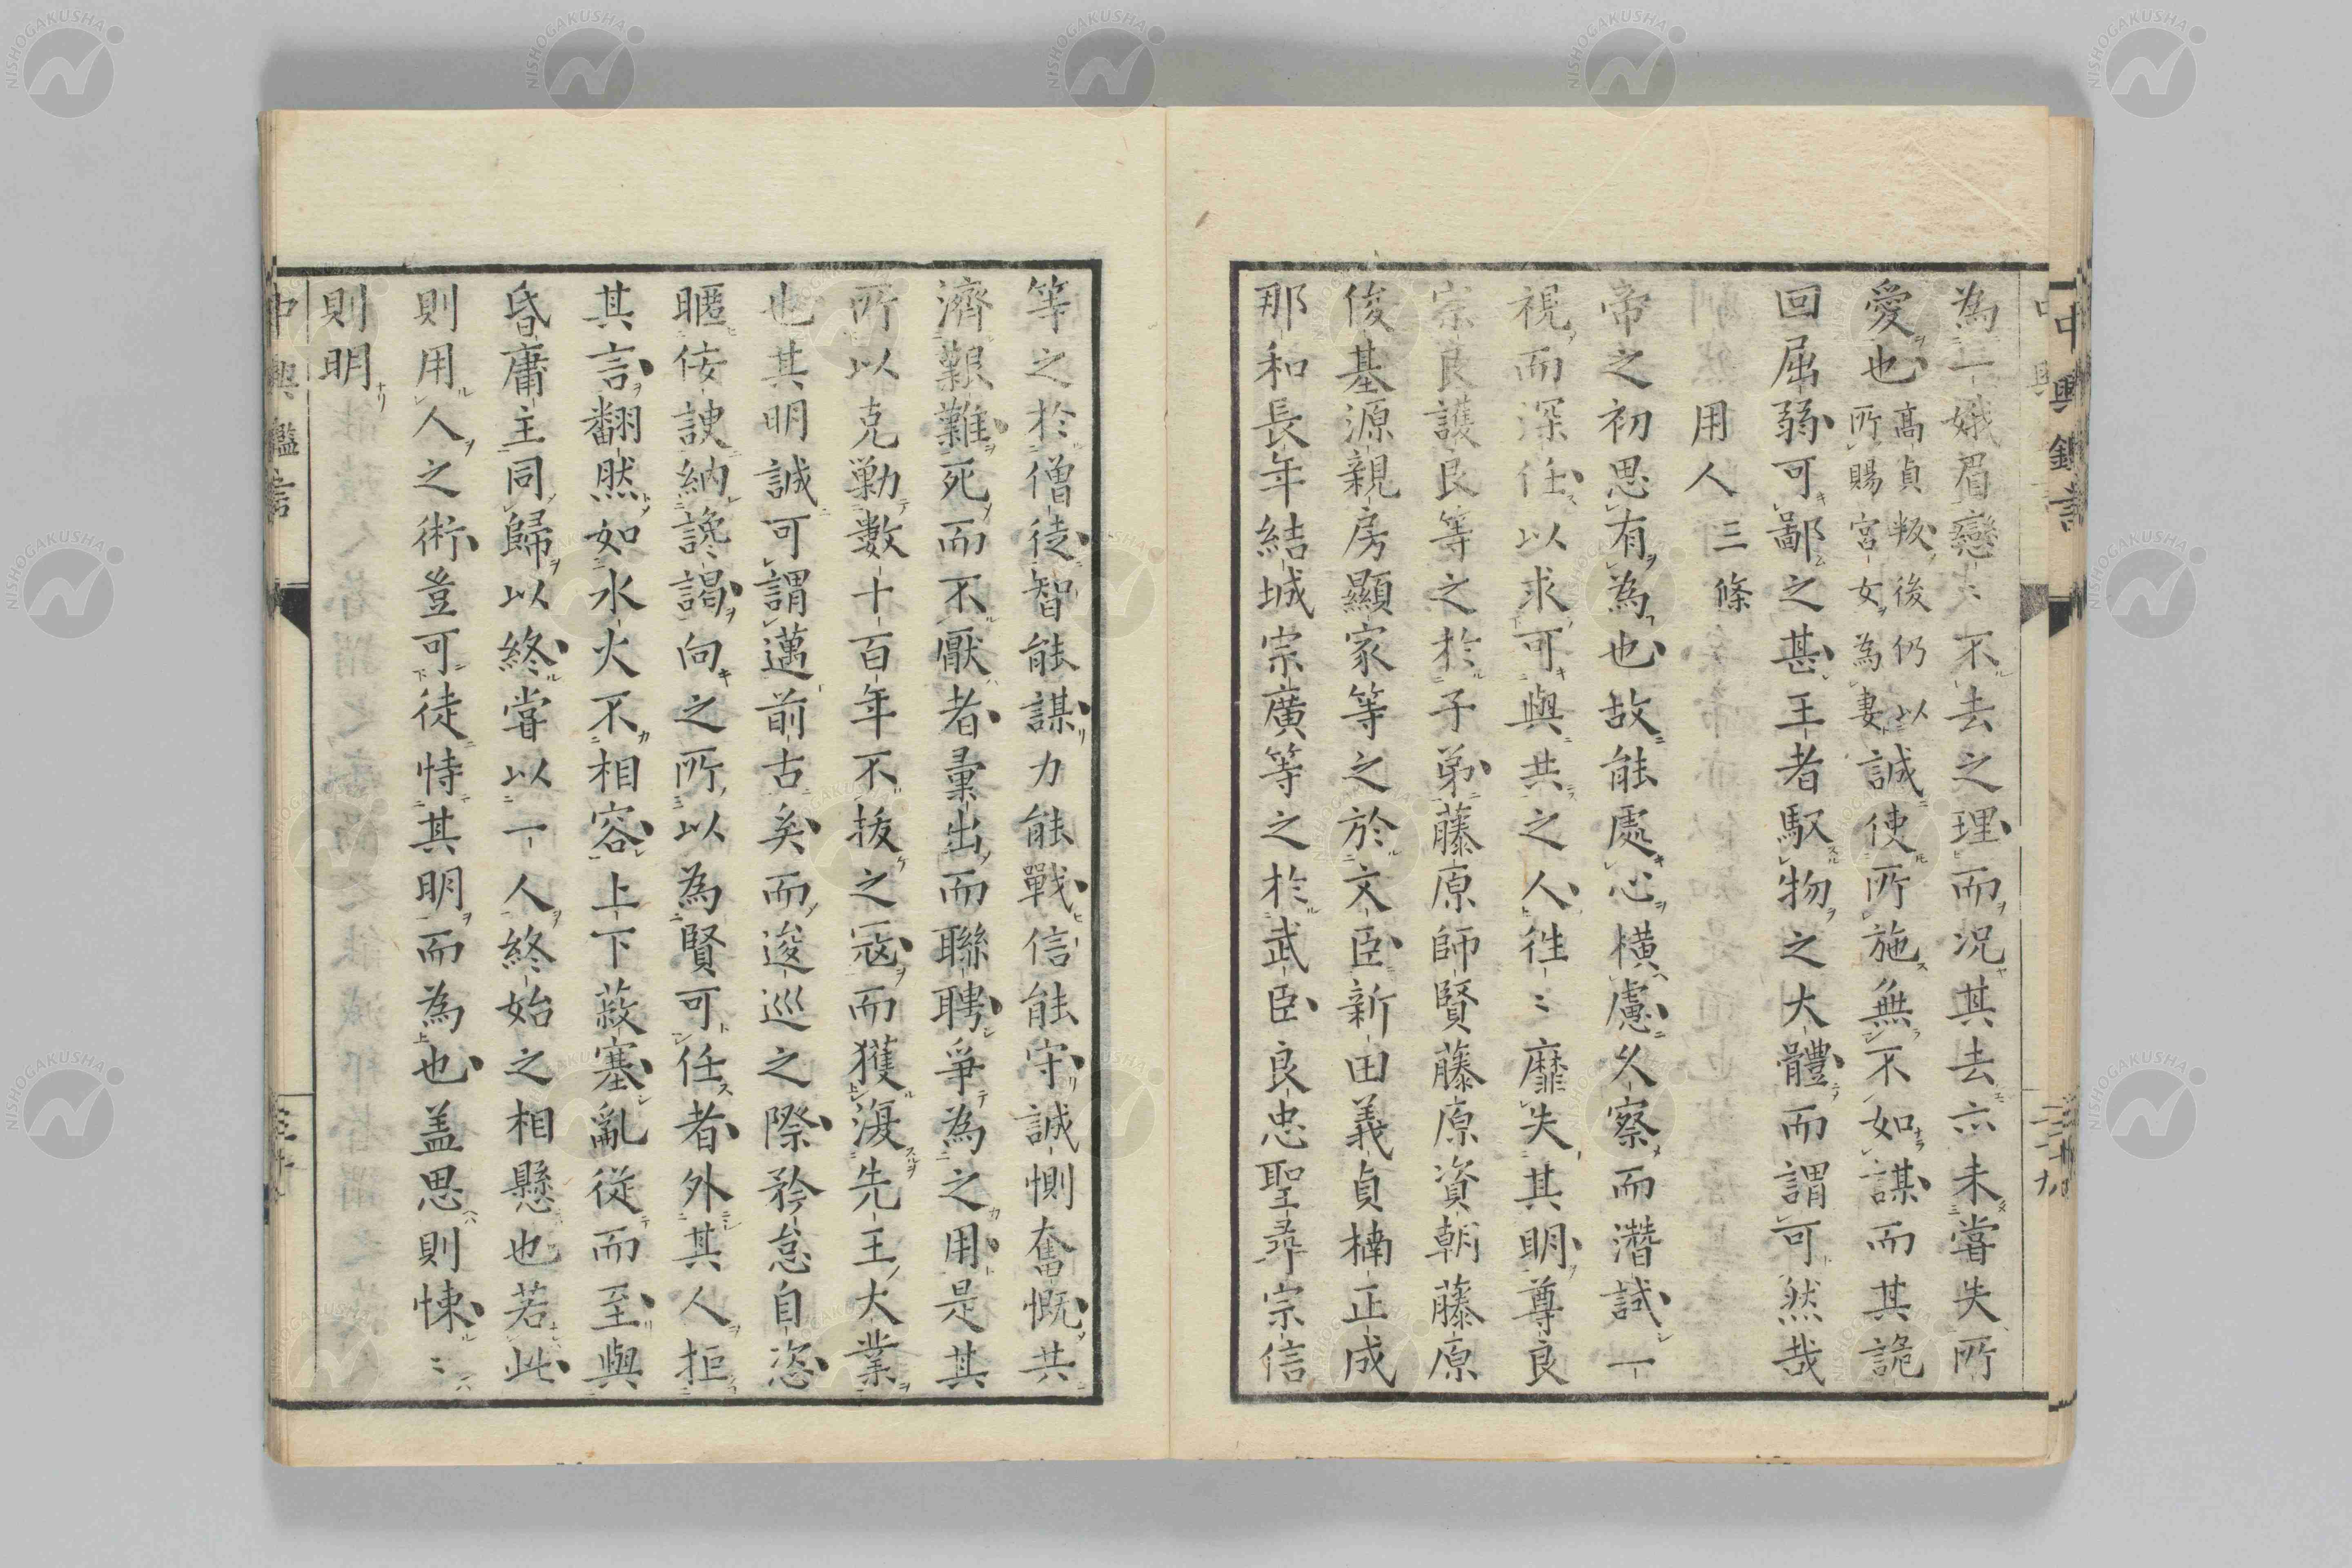 為一娥眉變〻不去之理而況其去亦未嘗失所
愛也高貞叛後仍以所賜宮女為妻誠使所施無不如謀而其詭
回屈弱可鄙之甚王者馭物之大體而謂可然哉
用人三條
帝之初思有為也故能處心橫慮久察而潛試一
視而深任以求可與共之人往〻靡失其明尊良
宗良護良等之於子弟藤原師賢藤原資朝藤原
俊基源親房顯家等之於文臣新田義貞楠正成
那和長年結城宗廣等之於武臣良忠聖尋宗信
等之於僧徒智能謀力能戰信能守誠惻奮慨共
濟艱難死而不厭者彙出而聯聘爭為之用是其
所以克勦數十百年不拔之寇而獲復先王大業
也其明誠可謂邁前古矣而逡巡之際矜怠自恣
暱侫諛納讒謁向之所以為賢可任者外其人拒
其言翻然如水火不相容上下蔽塞亂從而至與
昏庸主同歸以終嘗以一人終始之相懸也若此
則用人之術豈可徒恃其明而為也盖思則悚〻
則明
中興鑑言